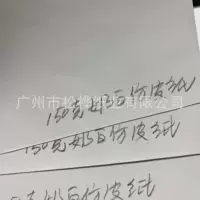 150克奶白仿皮纹
广州市松烨纸业有限公司
150克奶白仿皮纹
克奶白仿皮纹